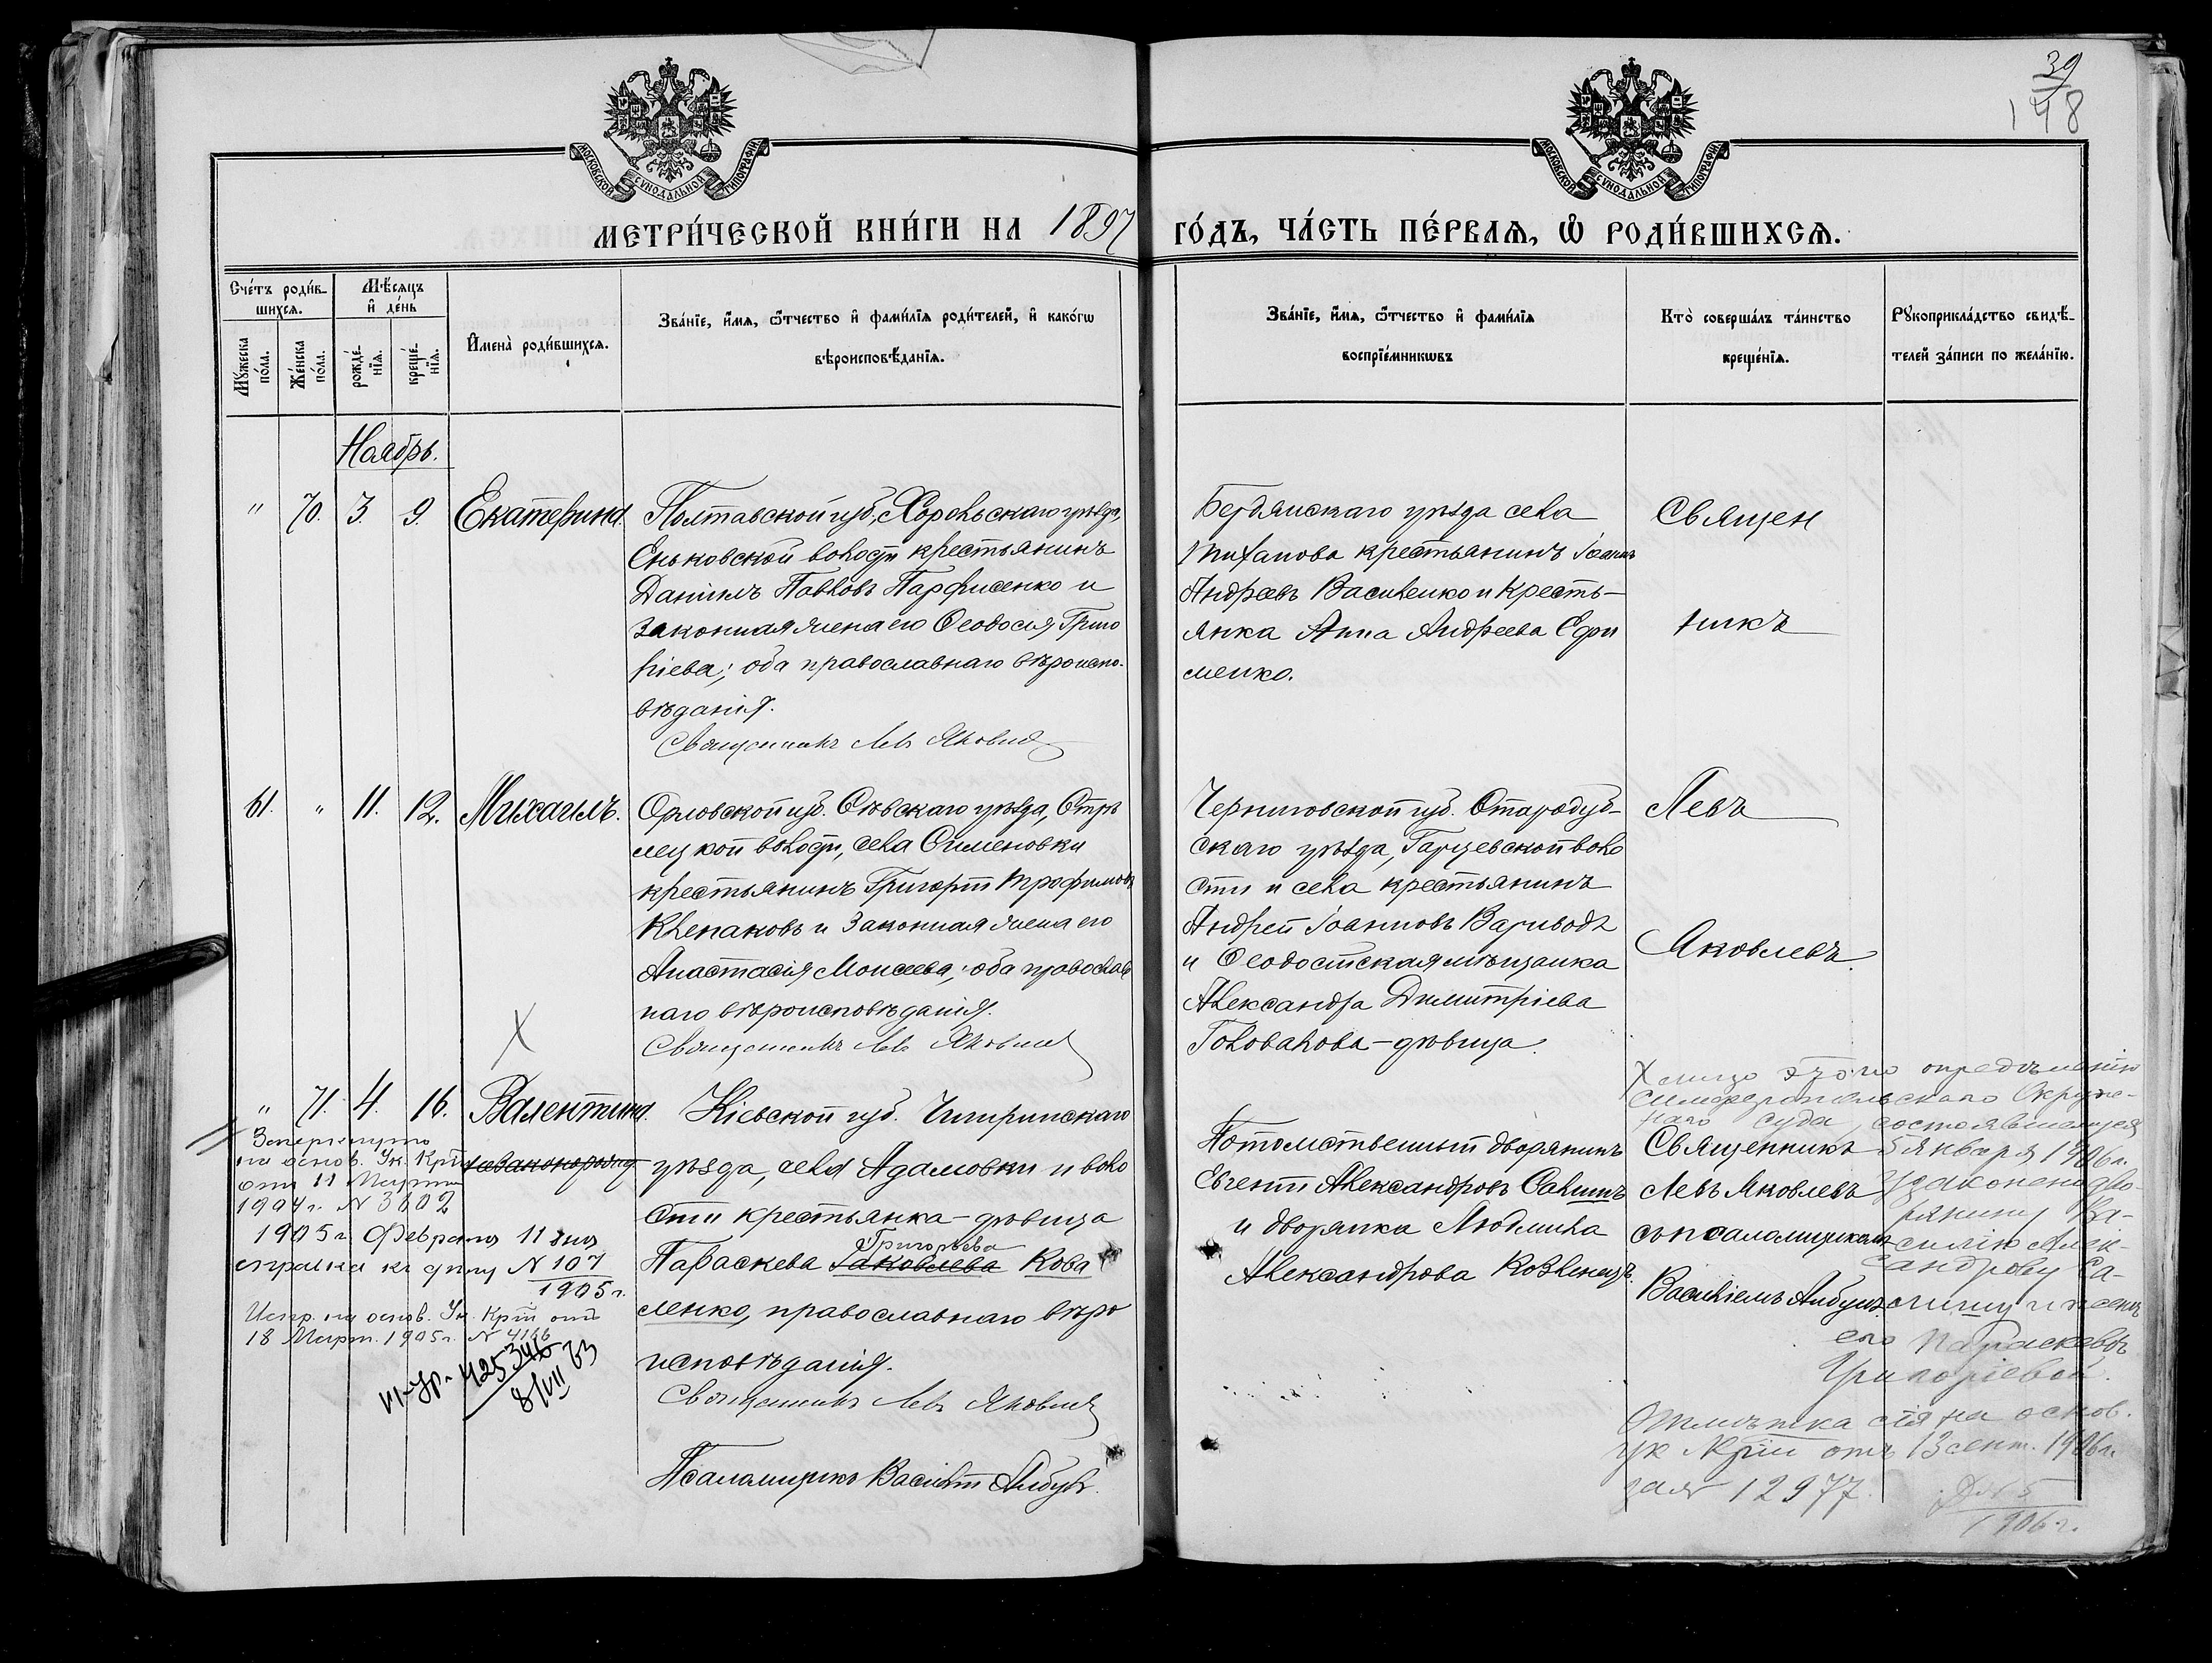 39
148
МОСКОВСКОЙ СѴНОДАЛЬНОЙ ТИПОГРАФІИ
МОСКОВСКОЙ СѴНОДАЛЬНОЙ ТИПОГРАФІИ
МЕТРИ́ЧЕСКОЙ КНИ́ГИ НА 1897 ГО́ДЪ, ЧА́СТЬ ПЕ́РВАѦ, Ѽ РОДИ́ВШИХСѦ.
Сче́тъ роди́в-
шихсѧ.
Мꙋ́жеска по́ла.
Же́нска по́ла.
Мѣ́сѧцъ
и҆ де́нь
рожде́нїѧ.
креще́нїѧ.
И҆мена̀ роди́вшихсѧ.
Зва́нїе, и҆́мѧ, ѻ҆́тчество и҆ фами́лїѧ роди́телей, и҆ како́гѡ
вѣроисповѣ́данїѧ.
Зва́нїе, и҆́мѧ, ѻ҆́тчество и҆ фами́лїѧ
воспрїе́мникѡвъ
Кто̀ соверша́лъ та́инство
креще́нїѧ.
Рꙋкоприкла́дство свидѣ́-
телей за́писи по жела́нїю.
Ноябрь.
" 70. 3. 9. Екатерина.
Полтавской губ., Хорольскаго уѣзда,
Еньковской волости крестьянинъ
Даніилъ Павловъ Парфисенко и
законная жена его Ѳеодосія Григо
ріева; оба православнаго вѣроиспо-
вѣданія.
Священникъ Левъ Яковлев
Бердянскаго уѣзда села
крестьянинъ Іоаннъ
Андреевъ Василенко и кресть-
янка Анна Андреева Ефи
менко.
Священ
никъ
61. " 11. 12. Михаилъ.
Орловской губ. Сѣвскаго уѣзда, Стрѣ
лецкой волости, села Сименовки
крестьянинъ Григорій Трофимовъ
Клепаковъ и законная жена его
Анастасія Моисеева; оба православ
наго вѣроисповѣданія.
Священникъ Левъ Яковлев
Черниговской губ. Стародуб-
скаго уѣзда, Гарцевской воло
сти и села крестьянинъ
Андрей Іоанновъ Варивода
и Ѳеодосійская мѣщанка
Александра Димитріева
Голованова - дѣвица.
Левъ
Яковлевъ.
X
" 71. 4. 16. Валентина.
незаконорожд.
Зачеркнуто
на основ. Ук. Крій
отъ 11 Марта
1904 г. № 3602
1905 г. Февраля 11 дня
справка къ дѣлу № 107
1905 г.
Испр. на основ. Ук. Крій отъ
18 Март. 1905 г. № 4166
425346
8/VII 63
Кіевской губ. Чигиринскаго
уѣзда, села Адамовки и воло
сти крестьянка - дѣвица
Григорьева
Параскева Іаковлева Кова
ленко, православнаго вѣро
исповѣданія.
Священникъ Левъ Яковлев
Псаломщикъ Василій Албулъ.
Потомственный дворянинъ
Евгеній Александровъ Салинъ
и дворянка Людмила
Александрова Козленецъ.
Священникъ
Левъ Яковлевъ
съ псаломщикомъ
Василіемъ Албулъ.
X лицо это по опредѣленію
Симферопольскаго Окруж-
наго суда, состоявшемуся
5 января 1906 г.
Узаконено дво-
рянину Ва-
силію Алек-
сандрову Са-
лину и женѣ
его Параскевѣ
Григоріевой.
Отмѣтка сія на основ.
ук. Крій отъ 13 сент. 1906 г.
за № 12977.
Д. № 5
1906 г.